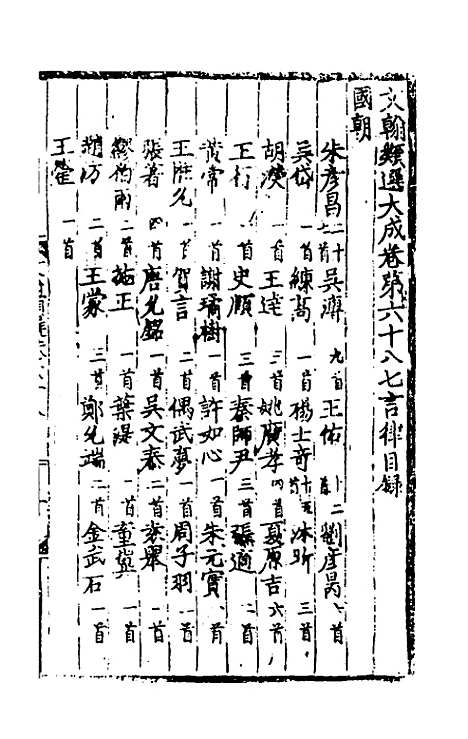 文翰類選大成卷第六十八七言律目錄
國朝
朱彥昌二十二首 吳濟九首 王佑十二首 劉彥昺一首
吳岱一首 練高一首 楊士奇十五首 沐昕三首
胡濙一首 王達三首 姚廣孝四首 夏原吉六首
王行一首 史順三首 秦師尹三首 張適二首
黃常一首 謝璚樹一首 許如心一首 朱元實一首
王勝允一首 賀言二首 偶武夢一首 周子羽一首
張著四首 唐允銘一首 吳文泰二首 裘舉一首
二首 施正一首 葉諟一首 童冀一首
趙汸二首 王蒙三首 鄭允端二首 金武石一首
王雚一首